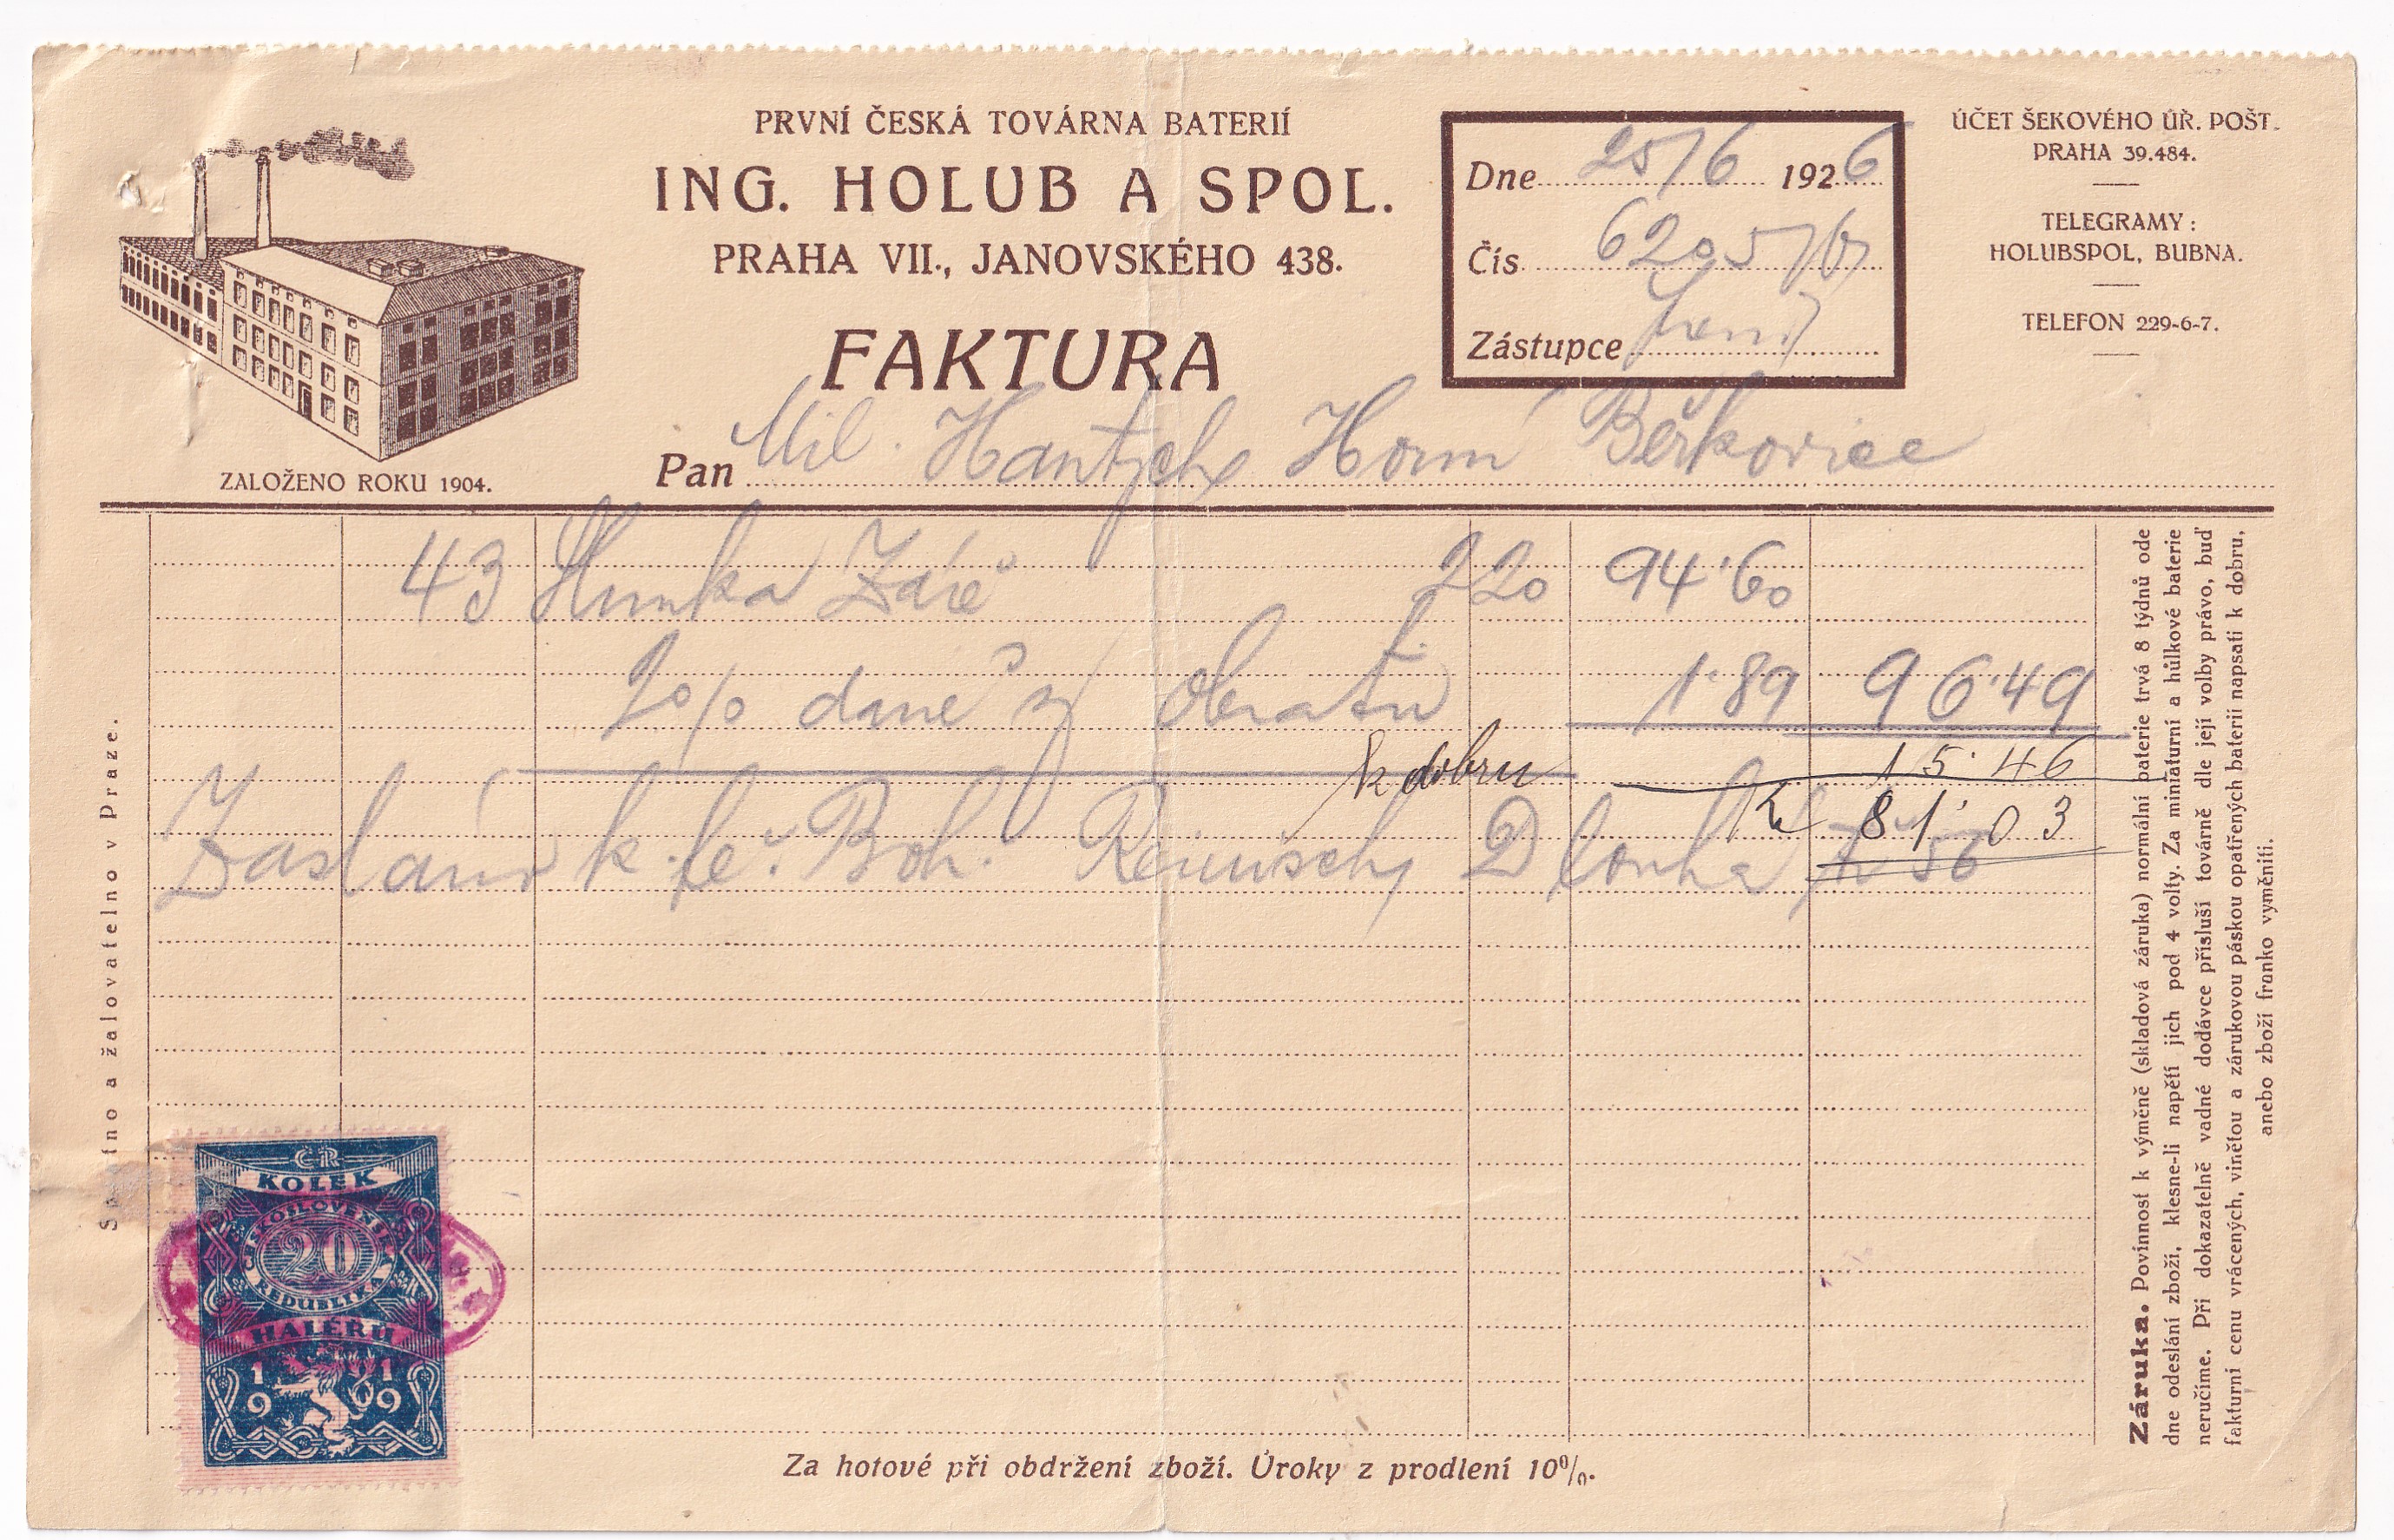 PRVNÍ ČESKÁ TOVÁRNA BATERIÍ
ING. HOLUB A SPOL.
PRAHA VII., JANOVSKÉHO 438.
FAKTURA
ZALOŽENO ROKU 1904.
Dne 25/6 1926
Čís. 6205/6
Zástupce
ÚČET ŠEKOVÉHO ÚŘ. POŠT.
PRAHA 39.484.
TELEGRAMY:
HOLUBSPOL, BUBNA.
TELEFON 229-6-7.
Pan Mil. Hantych Horní Beřkovice
43 Humka Záře 220 94·60
2% daně z obratu 1·89 96·49
k dobru 15·46
Kč 81·03
Zasláno k fě. Boh. Dlouhá tř 56
Splatno a žalovatelno v Praze.
Záruka. Povinnost k výměně (skladová záruka) normální baterie trvá 8 týdnů ode
dne odeslání zboží, klesne-li napětí jich pod 4 volty. Za miniaturní a hůlkové baterie
neručíme. Při dokazatelně vadné dodávce přísluší továrně dle její volby právo, buď
fakturní cenu vrácených, vinětou a zárukovou páskou opatřených baterií napsati k dobru,
anebo zboží franko vyměniti.
ČR
KOLEK
ČESKOSLOVENSKÁ
20
REPUBLIKA
HALÉŘŮ
1919
Za hotové při obdržení zboží. Úroky z prodlení 10%.